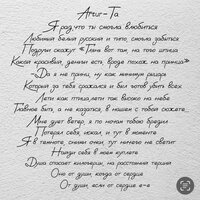 Artur-Ta
Я рад, что ты смогла влюбиться
Любимый белый русский и типо, смогла забыться
Подруги скажут «Глянь вот там, на того типца
Какой красивый, деньги есть, вроде похож на принца»
Да я не принц, ну как минимум рыцарь
Который за тебя сражался и был готов убить всех
Лети как птица, лети так высоко на небе
Главное быть, а не казаться, в нашем с тобою сюжете
Мне дует ветер, я по ночам тобою бредил
Потерял себя, искал, и тут в моменте
Я в темноте, сними очки, тут ничего не светит
Найди себя в моем куплете
Душа стоает километры, на расстоянии терпит
Она от души, когда от сердца
От души, если от сердца е-е